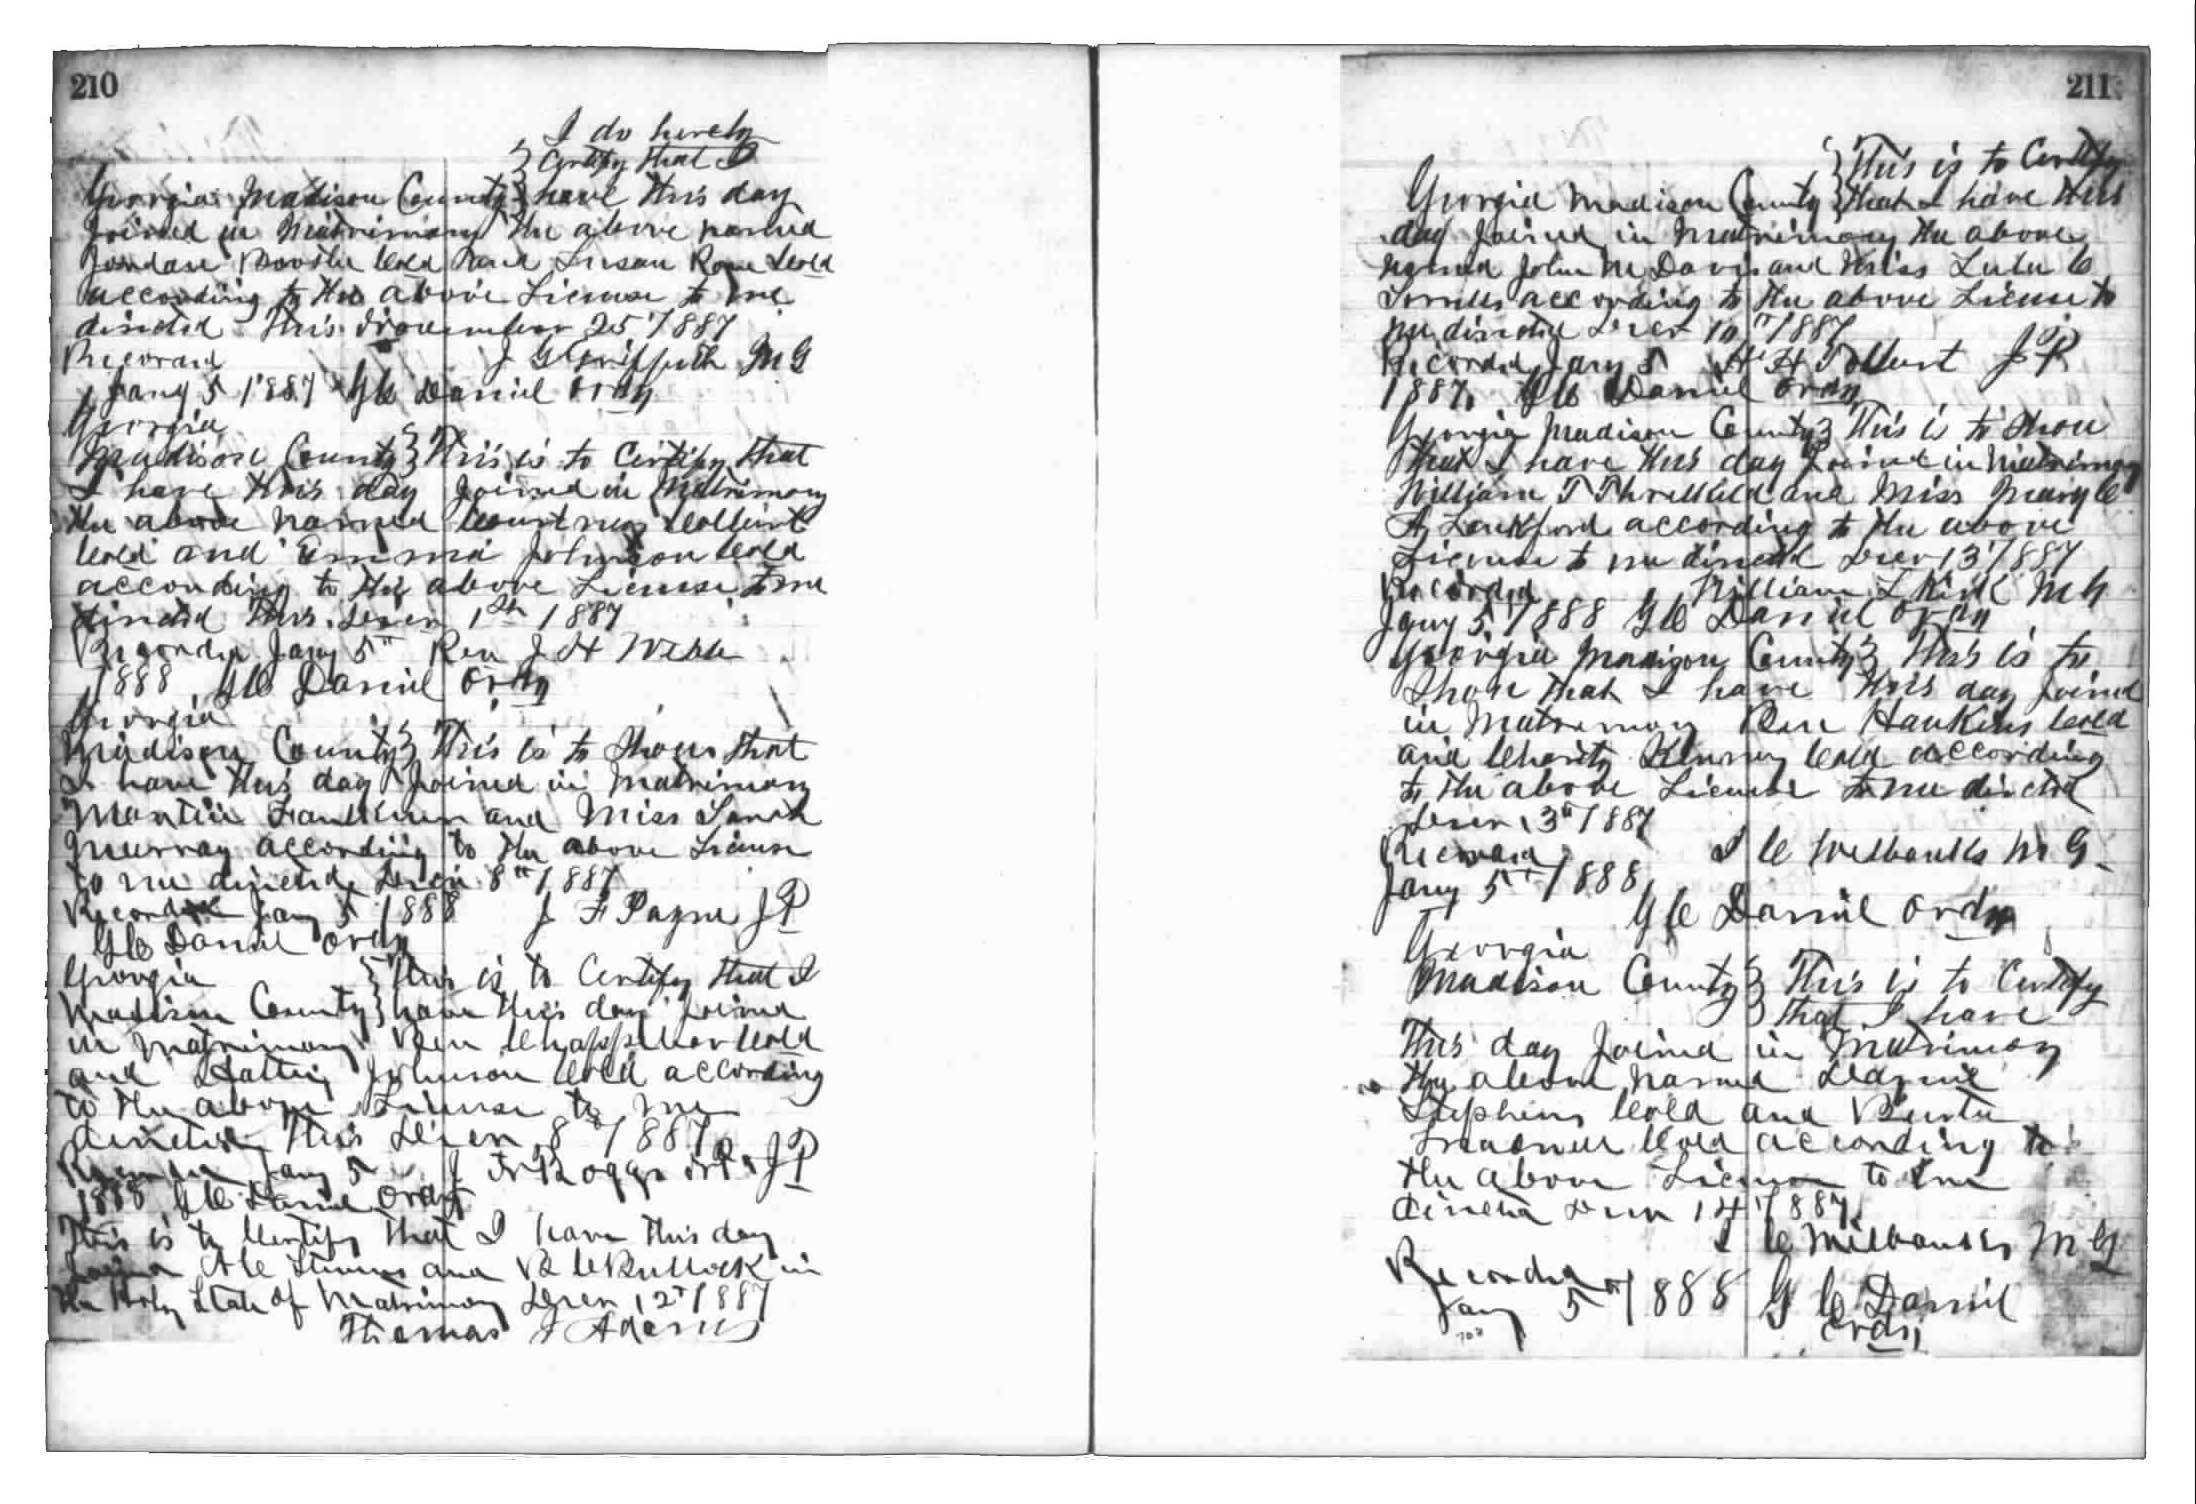 210
I do hereby
Certify that I
Georgia Madison County } have this day
Joined in Matrimony the above named
Cold and Susan Cold
according to the above License to me
directed This November 25 1887
Record J G Griffeth M G
Jany 5 1887 G C Daniel Ordy
Georgia
Madison County } This is to Certify that
I have this day Joined in Matrimony
the above named
Cold and Emma Johnson Cold
according to the above License to me
directed this Decr 1st 1887
Recorded Jany 5th Rev J H Webb
1888 G C Daniel Ordy
Georgia
Madison County } This is to Show that
I have this day Joined in Matrimony
Martin and Miss Sarah
Murray according to the above License
to me directed Decr 8th 1887
Recorded Jany 5 1888 J F Payne J P
G C Daniel Ordy
Georgia { This is to Certify that I
Madison County } have this day Joined
in Matrimony Ben Cold
and Johnson Cold according
to the above License to me
directed This Decr 8th 1887
Jany 5 J Boggs J P
1888 G C Daniel Ordy
This is to Certify that I have this day
and B C Bullock in
the Holy State of Matrimony Decr 12th 1887
Thomas J Adams
211
{ This is to Certify
Georgia Madison County } that I have this
day Joined in Matrimony the above
named John M Davis and Miss Lulu C
according to the above License to
me directed Decr 10th 1887
Recorded Jany 5 H H Tolbert J P
1887, G C Daniel Ordy
Georgia Madison County } This is to Show
that I have this day Joined in Matrimony
William T Threlkeld and Miss Mary C
A Lankford according to the above
License to me directed Decr 13 1887
Recorded William L Kirk M G
Jany 5 1888 G C Daniel Ordy
Georgia Madison County } This is to
Show that I have this day Joined
in Matrimony Ben Hawkins Cold
and Charity Cold according
to the above License to me directed
Decr 13th 1887
Record
Jany 5th 1888 I C Wilbanks M G
G C Daniel Ordy
Georgia
Madison County } This is to Certify
} that I have
This day Joined in Matrimony
the above named
Stephens Cold and
Cold according to
the above License to me
directed Decr 14 1887
I C Wilbanks M G
Recorded
Jany 5th 1888 G C Daniel
Ordy